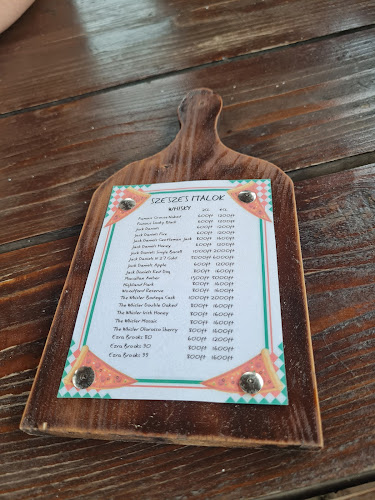 SZESZES ITALOK
WHISKY 2cl 4cl
Famous Grouse Naked 600ft 1200ft
Famous Smoky Black 600ft 1200ft
Jack Daniels 600ft 1200ft
Jack Daniels Fire 600ft 1200ft
Jack Daniels Gentleman Jack 800ft 1600ft
Jack Daniels Honey 600ft 1200ft
Jack Daniels Single Barell 1000ft 2000ft
Jack Daniels N 27 Gold 3000ft 6000ft
Jack Daniels Apple 600ft 1200ft
Jack Daniels Red Dog 800ft 1600ft
Macallan Amber 1500ft 3000ft
Highland Park 800ft 1600ft
Woodford Reserve 800ft 1600ft
The Whisler Bodega Cask 1000ft 2000ft
The Whisler Double Oaked 800ft 1600ft
The Whisler Irish Honey 800ft 1600ft
The Whisler Mosaic 800ft 1600ft
The Whisler Oloroso Sherry 800ft 1600ft
Ezra Brooks 80 601ft 1200ft
Ezra Brooks 90 800ft 1600ft
Ezra Brooks 99 800ft 1600ft